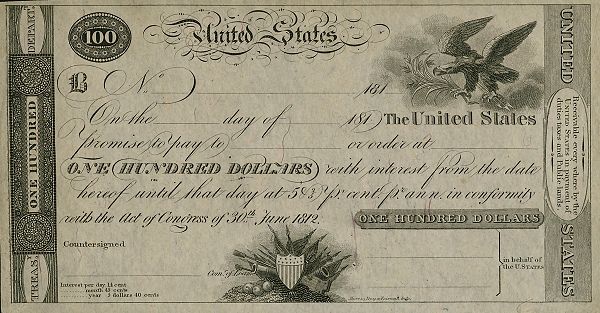 DEPART.
ONE HUNDRED
TREAS.
100
United States
B No. 181
On the day of 181 The United States
promise to pay to or order at
ONE HUNDRED DOLLARS with interest from the date
hereof until that day at 5⅖ pr. cent. pr. ann. in conformity
with the Act of Congress of 30th. June 1812. ONE HUNDRED DOLLARS
Countersigned
Com. of Loans
in behalf of
the U.STATES
Interest per day 1½ cent
month 45 cents
year 5 dollars 40 cents
UNITED
STATES
Receivable every where by the
UNITED STATES in payment of
duties taxes and Public lands